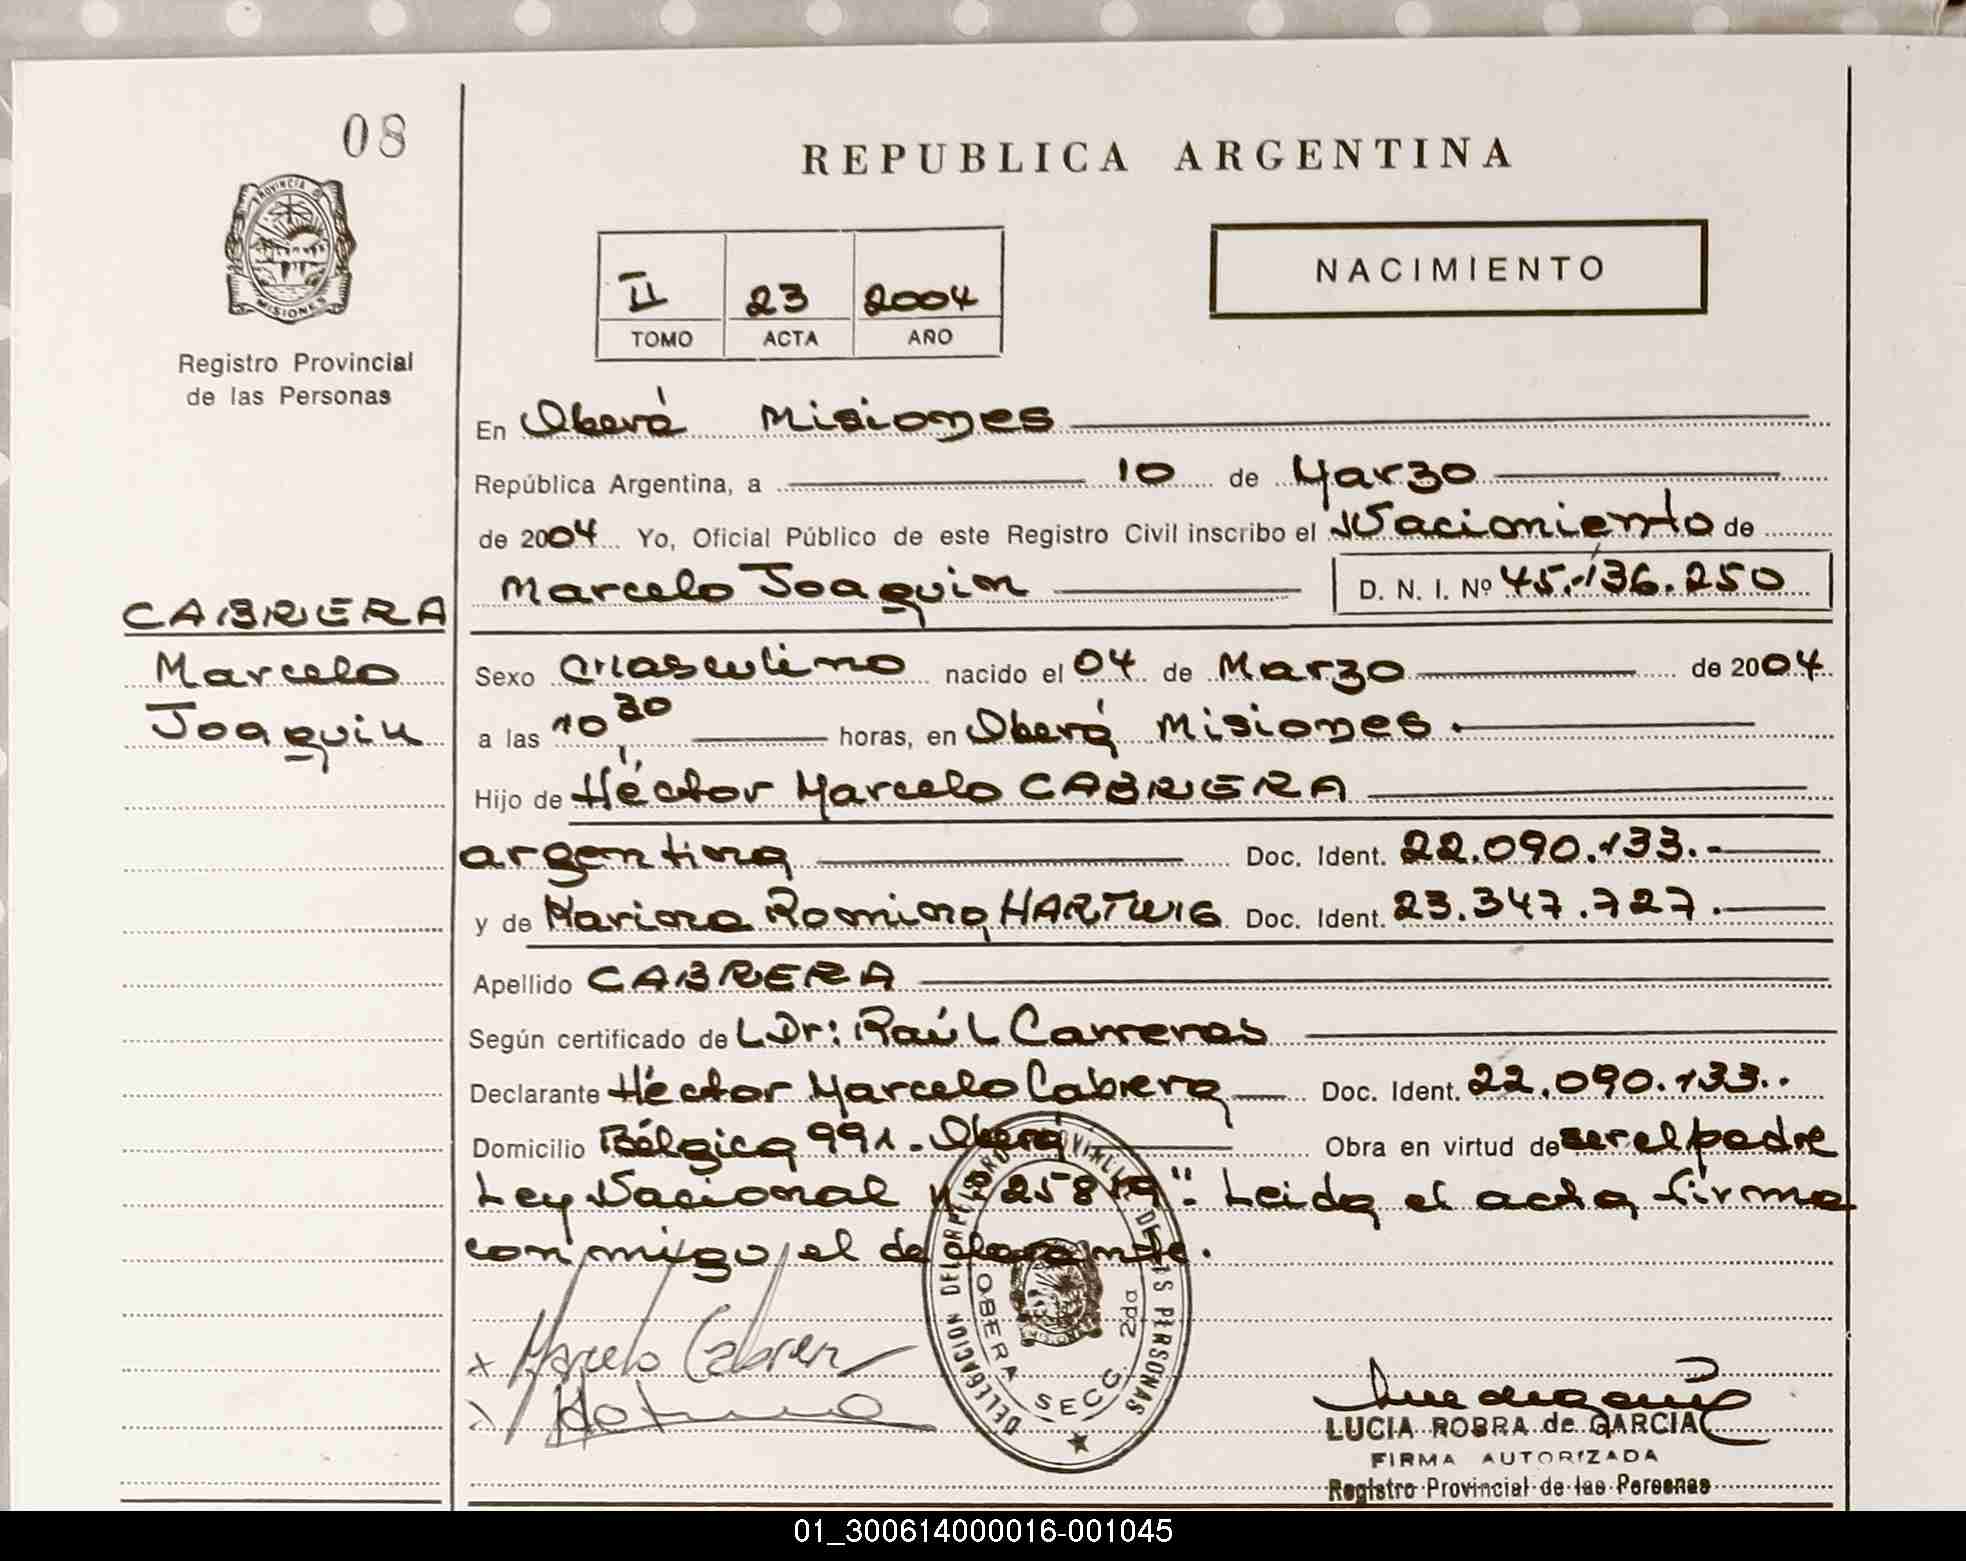 08
REPUBLICA ARGENTINA
PROVINCIA DE
MISIONES
NACIMIENTO
II 23 2004
TOMO ACTA AÑO
Registro Provincial
de las Personas
En Oberá Misiones
República Argentina, a 10 de Marzo
de 2004 Yo, Oficial Público de este Registro Civil inscribo el Nacimiento de
Marcelo Joaquin D. N. I. Nº 45.136.250
CABRERA
Marcelo
Joaquin
Sexo Masculino nacido el 04 de Marzo de 2004
a las 10 30 horas, en Oberá Misiones
Hijo de Héctor Marcelo CABRERA
argentina Doc. Ident. 22.090.133.-
y de Marina Romina HARTWIG Doc. Ident. 23.347.727.
Apellido CABRERA
Según certificado de Dr: Raúl Carreras
Declarante Héctor Marcelo Cabrera Doc. Ident. 22.090.133..
Domicilio Bélgica 991. Oberá Obra en virtud de ser el padre
Ley Nacional nº 25819". Leida el acta firma
conmigo el declarante.
DELEGACION DEL REGISTRO PROVINCIAL DE LAS PERSONAS
OBERA SECC. 2da
MISIONES
x Marcelo Cabrera
LUCIA ROBRA de GARCIA
FIRMA AUTORIZADA
Registro Provincial de las Personas
01_300614000016-001045